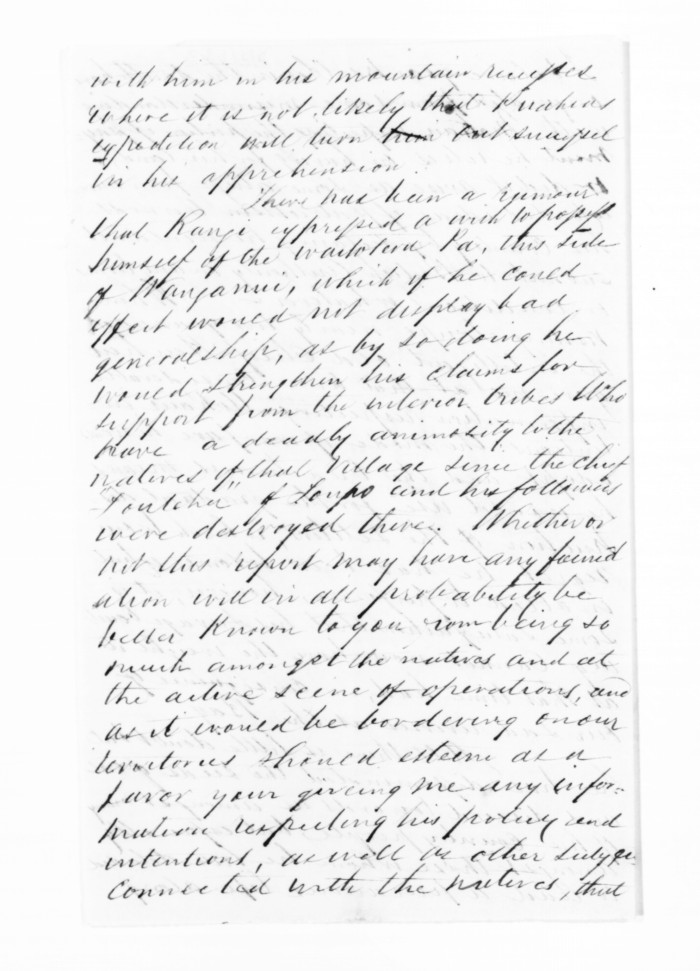 with him in his mountain recesses
where it is not likely that Ruahines
expedition will turn from out successful
in his apprehension.
There has been a rumour
that Rangi expressed a wish to possess
himself of the Waitotara Pa, this side
of Wanganui, which if he could
effect would not display bad
generalship, as by so doing he
would strengthen his claims for
support from the interior tribes who
have a deadly animosity to the
natives of that village since the chief
of Toupo and his followers
were destroyed there. Whether or
not this report may have any found
ation will in all probability be
better known to you from being so
much amongst the natives and at
the active scene of operations, and
as it would be bordering on our
territories should esteem as a
favor your giving me any infor=
mation respecting his policy and
intentions, as well as other
connected with the natives, that